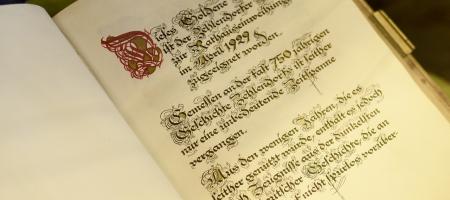 Dieses Goldene
ist der Zehlendorfer
zur Rathauseinweihung
im April 1929
zugeeignet worden.
Gemessen an der fast 750 jährigen
Geschichte Zehlendorfs ist seither
nur eine unbedeutende Zeitspanne
vergangen.
Aus den wenigen Jahren, die es
seither genutzt wurde, enthält es jedoch
auch Zeugnisse aus der dunkelsten
Geschichte, die an
nicht spurlos vorüber